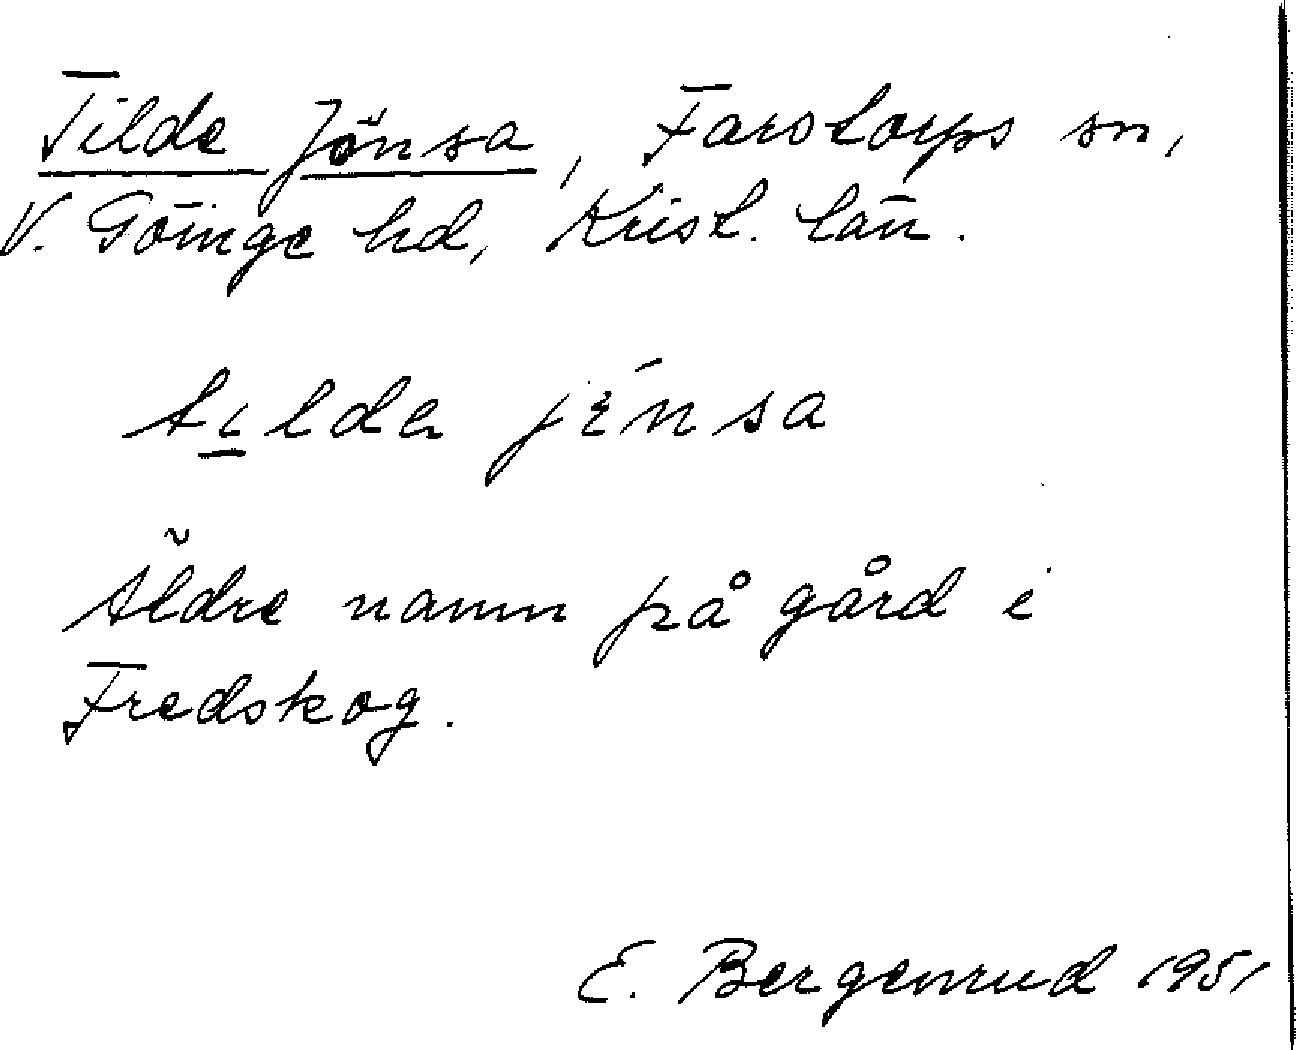 Tilde Jönsa, Farstorps sn,
V. Göinge hd, Krist. län.
tilda jénsa
Äldre namn på gård i
Fredskog.
E. Bergenrud 1951